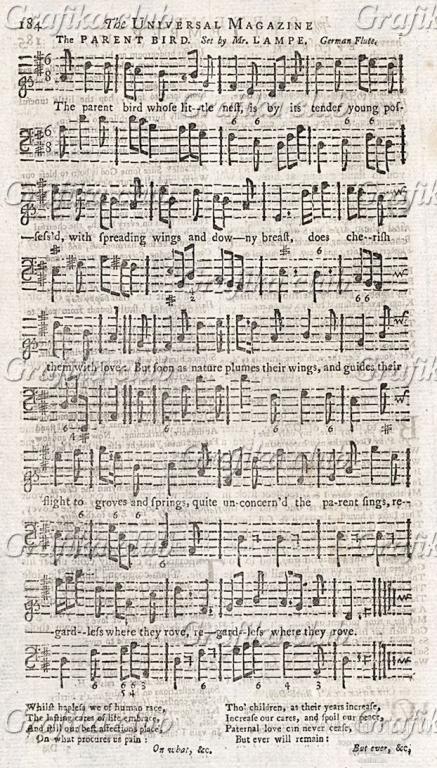 184 The UNIVERSAL MAGAZINE
The PARENT BIRD. Set by Mr. LAMPE. German Flute.
The parent bird whose lit--tle neſt, is by its tender young poſ-
—ſeſs'd, with spreading wings and dow—ny breaſt, does che--riſh
them with love. But ſoon as nature plumes their wings, and guides their
flight to groves and ſprings, quite un-concern'd the pa-rent ſings, re-
—gard--leſs where they rove, re—gard--leſs where they rove.
Whilſt hapleſs we of human race,
The laſting cares of life embrace,
And ſtill our beſt affections place,
On what procures us pain:
On what, &c.
Tho' children, as their years increaſe,
Increaſe our cares, and ſpoil our peace,
Paternal love can never ceaſe,
But ever will remain:
But ever, &c.
Grafikaclub